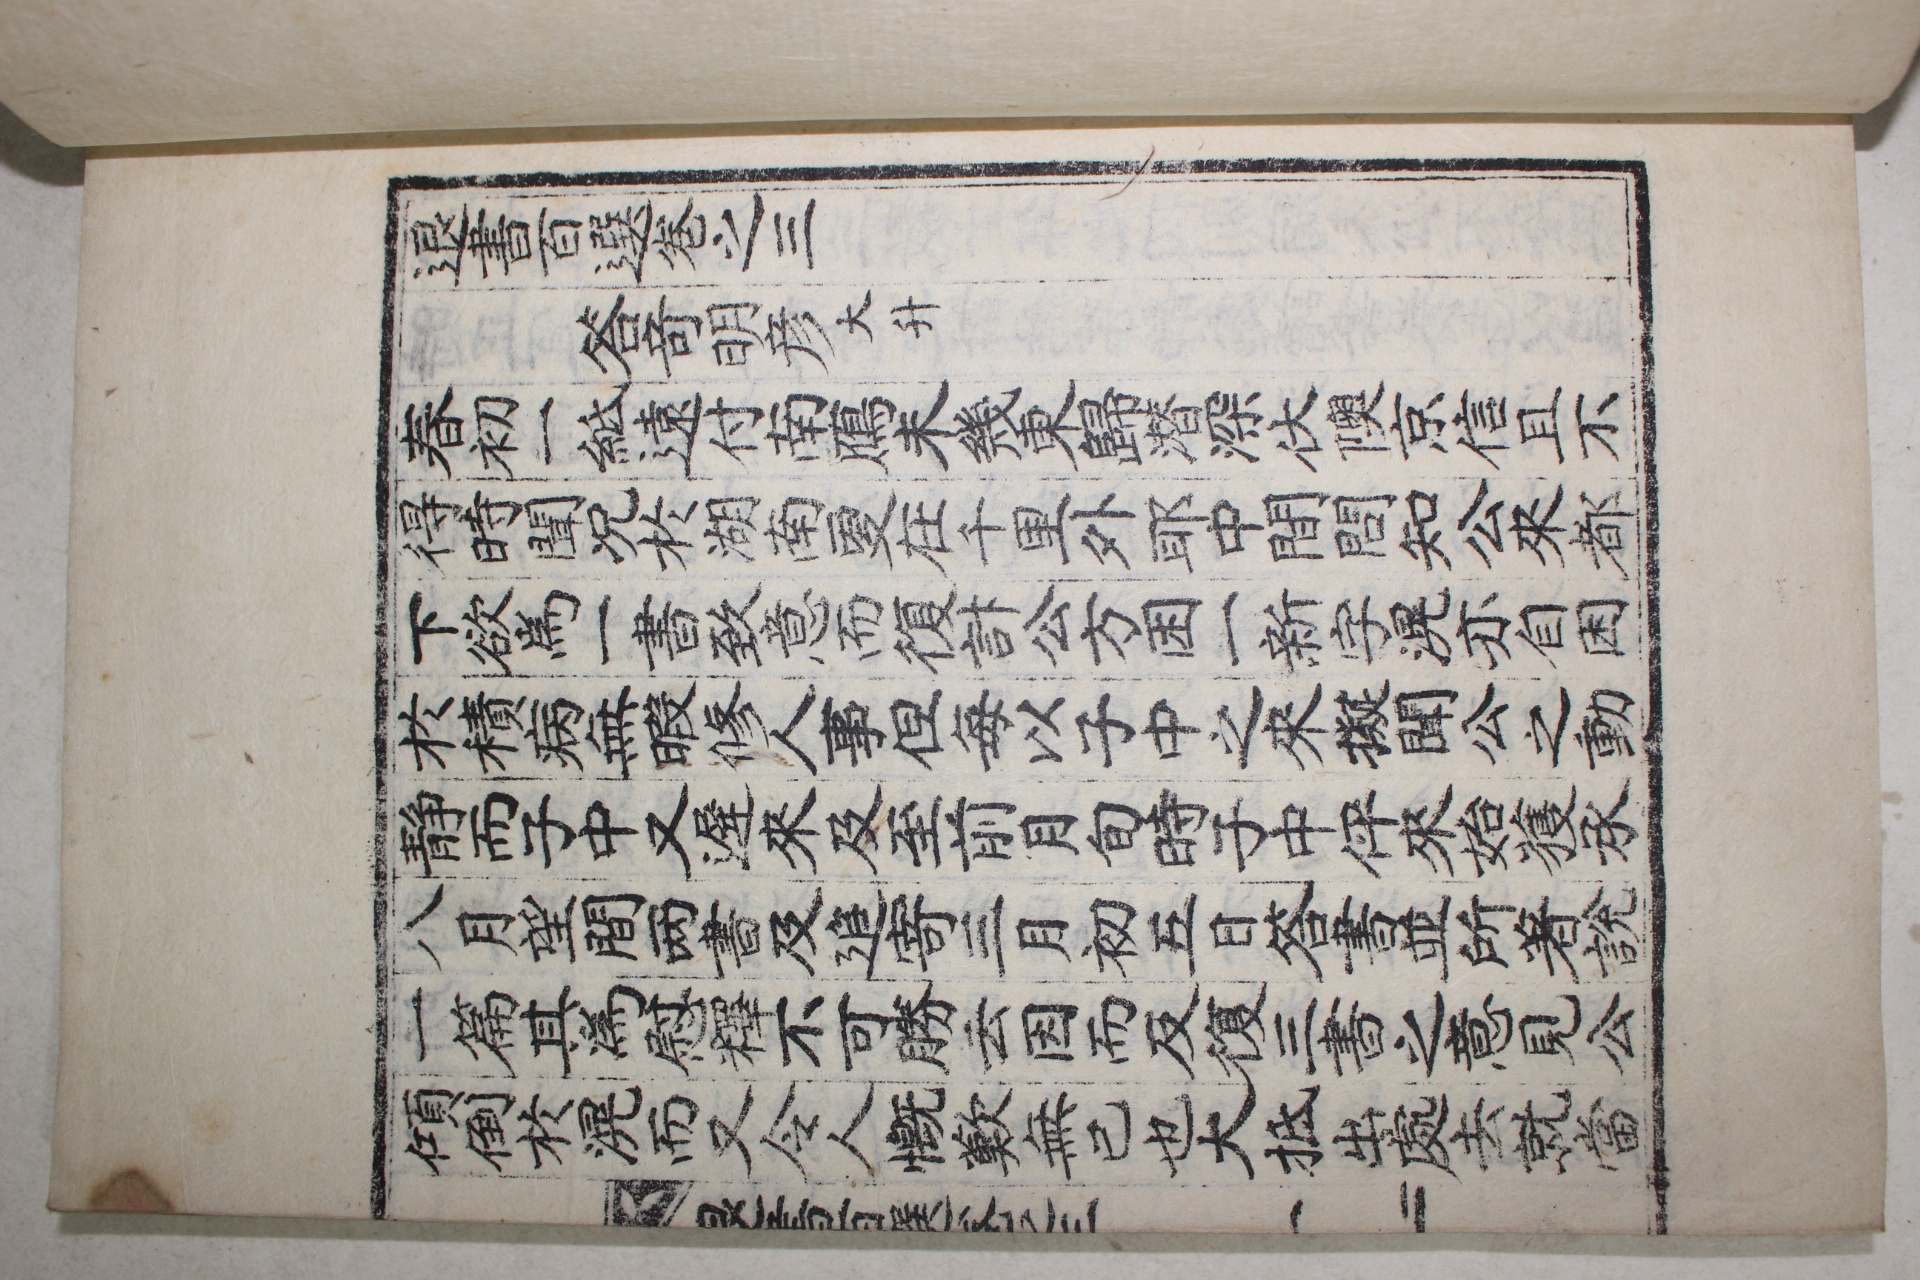 退書百選卷之三
答奇明彦大升
春初一紙遠付南鴈未幾東歸潜深伏隩京信且不
得時聞况於湖南更在千里外耶中間問知公來都
下欲爲一書致意而復計公方困一新字滉亦自困
於積病無暇修人事但每以子中之來擬聞公之動
静而子中又遲來及至前月旬時子中伻來始獲承
八月望間两書及追寄三月初五日答書並所著說
一篇其爲慰釋不可勝云因而反復三書之意見公
傾倒於滉而又令人慨歎無已也大抵出處去就當
退書百選卷之三 一 二